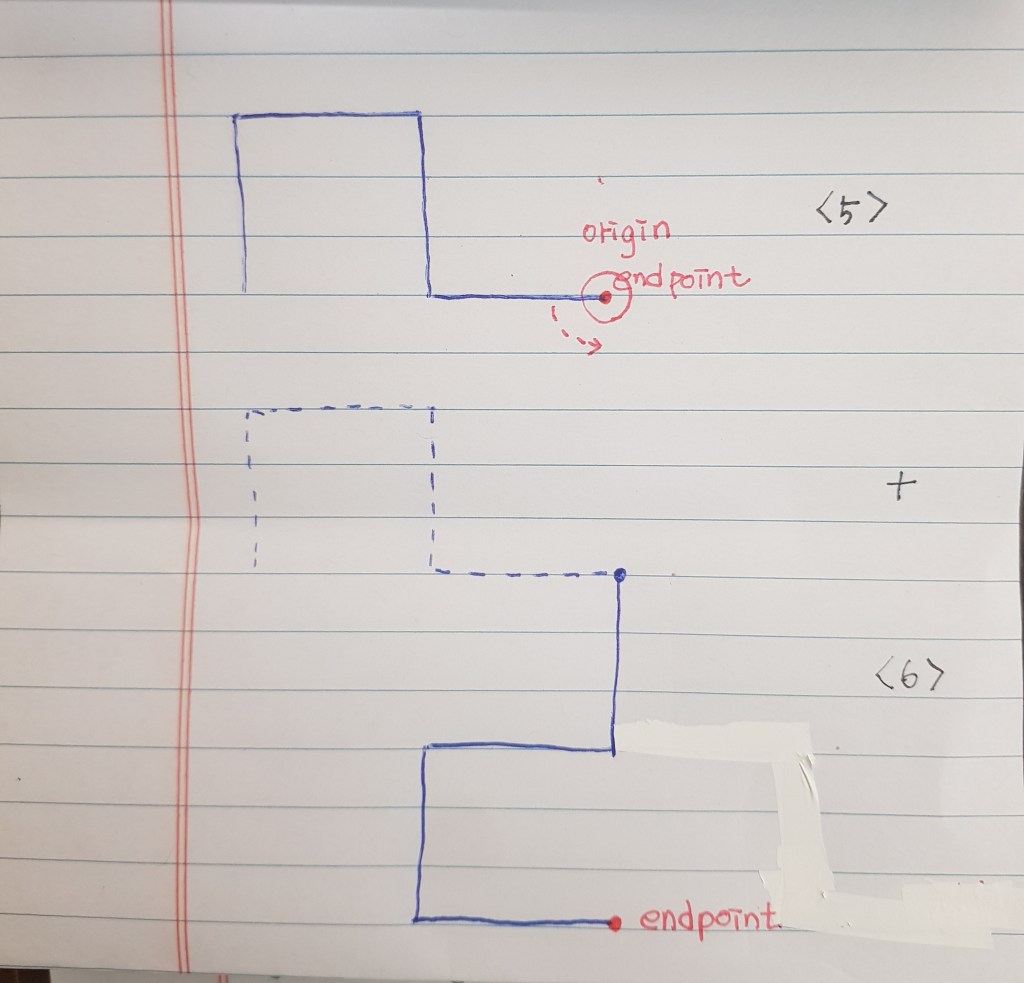 <5>
origin
endpoint
+
<6>
endpoint.